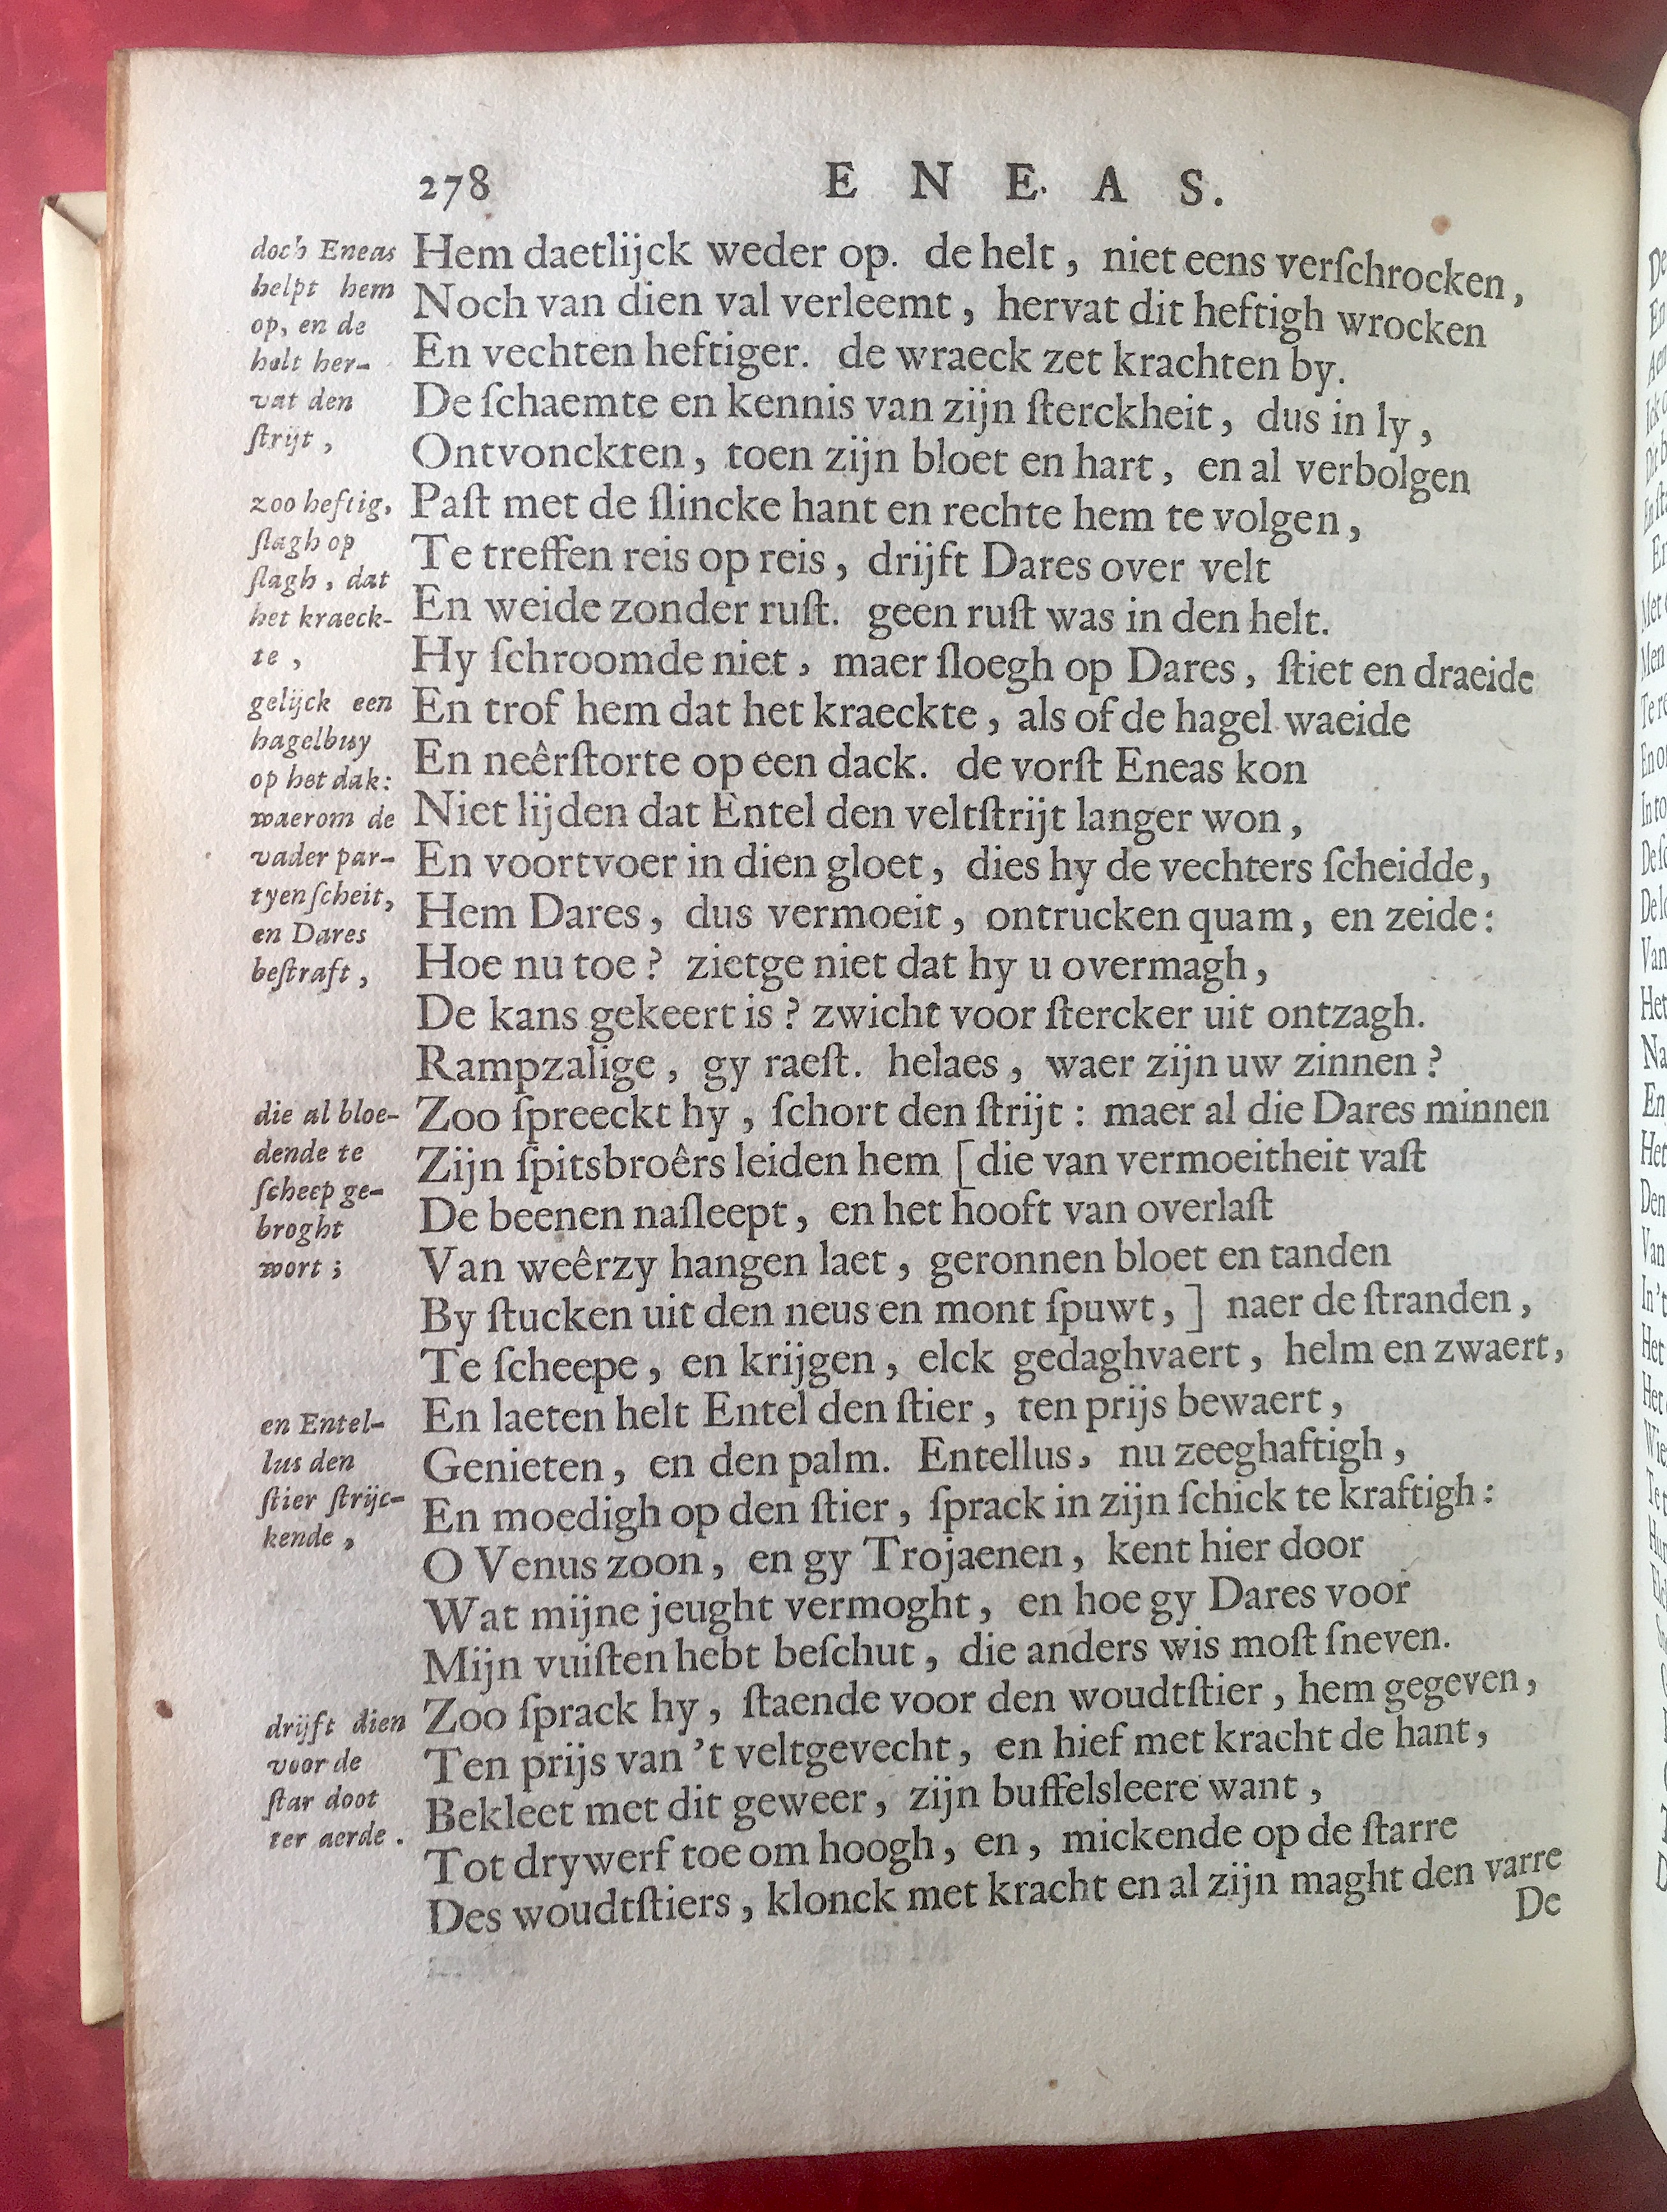 278 ENEAS.
doch Eneas
helpt hem
op, en de
helt her-
vat den
ſtrijt,
zoo heftig,
ſlagh op
ſlagh, dat
het kraeck-
te,
gelijck een
hagelbuy
op het dak:
waerom de
vader par-
tyen ſcheit,
en Dares
beſtraft,
die al bloe-
dende te
ſcheep ge-
broght
wort;
en Entel-
lus den
ſtier ſtrijc-
kende,
drijft dien
voor de
ſtar doot
ter aerde.
Hem daetlijck weder op. de helt, niet eens verſchrocken,
Noch van dien val verleemt, hervat dit heftigh wrocken
En vechten heftiger. de wraeck zet krachten by.
De ſchaemte en kennis van zijn ſterckheit, dus in ly,
Ontvonckten, toen zijn bloet en hart, en al verbolgen
Paſt met de ſlincke hant en rechte hem te volgen,
Te treffen reis op reis, drijft Dares over velt
En weide zonder ruſt. geen ruſt was in den helt.
Hy ſchroomde niet, maer ſloegh op Dares, ſtiet en draeide
En trof hem dat het kraeckte, als of de hagel waeide
En neêrſtorte op een dack. de vorſt Eneas kon
Niet lijden dat Entel den veltſtrijt langer won,
En voortvoer in dien gloet, dies hy de vechters ſcheidde,
Hem Dares, dus vermoeit, ontrucken quam, en zeide:
Hoe nu toe? zietge niet dat hy u overmagh,
De kans gekeert is? zwicht voor ſtercker uit ontzagh.
Rampzalige, gy raeſt. helaes, waer zijn uw zinnen?
Zoo ſpreeckt hy, ſchort den ſtrijt: maer al die Dares minnen
Zijn ſpitsbroêrs leiden hem [die van vermoeitheit vaſt
De beenen naſleept, en het hooft van overlaſt
Van weêrzy hangen laet, geronnen bloet en tanden
By ſtucken uit den neus en mont ſpuwt,] naer de ſtranden,
Te ſcheepe, en krijgen, elck gedaghvaert, helm en zwaert,
En laeten helt Entel den ſtier, ten prijs bewaert,
Genieten, en den palm. Entellus, nu zeeghaftigh,
En moedigh op den ſtier, ſprack in zijn ſchick te kraftigh:
O Venus zoon, en gy Trojaenen, kent hier door
Wat mijne jeught vermoght, en hoe gy Dares voor
Mijn vuiſten hebt beſchut, die anders wis moſt ſneven.
Zoo ſprack hy, ſtaende voor den woudtſtier, hem gegeven,
Ten prijs van 't veltgevecht, en hief met kracht de hant,
Bekleet met dit geweer, zijn buffelsleere want,
Tot drywerf toe om hoogh, en, mickende op de ſtarre
Des woudtſtiers, klonck met kracht en al zijn maght den varre
De